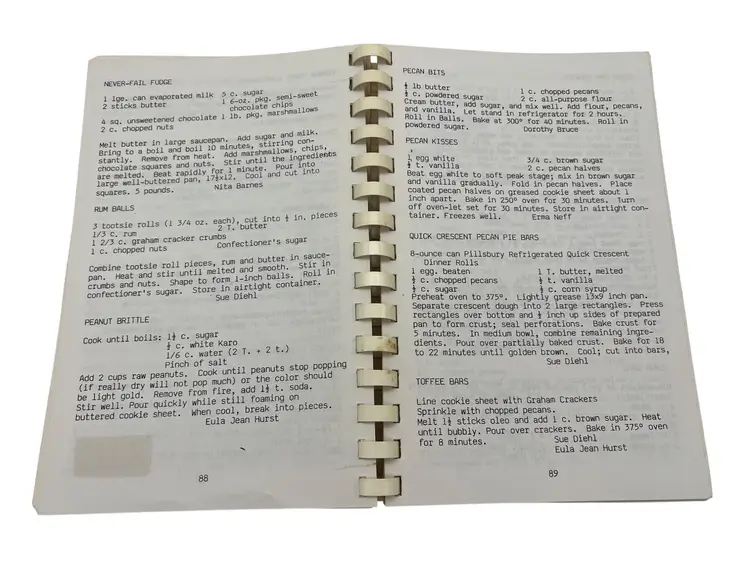 NEVER-FAIL FUDGE
1 lge. can evaporated milk 5 c. sugar
2 sticks butter 1 6-oz. pkg. semi-sweet
chocolate chips
4 sq. unsweetened chocolate 1 lb. pkg. marshmallows
2 c. chopped nuts
Melt butter in large saucepan. Add sugar and milk.
Bring to a boil and boil 10 minutes, stirring con-
stantly. Remove from heat. Add marshmallows, chips,
chocolate squares and nuts. Stir until the ingredients
are melted. Beat rapidly for 1 minute. Pour into
large well-buttered pan, 17½x12. Cool and cut into
squares. 5 pounds. Nita Barnes
RUM BALLS
3 tootsie rolls (1 3/4 oz. each), cut into ½ in. pieces
1/3 c. rum 2 T. butter
1 2/3 c. graham cracker crumbs
1 c. chopped nuts Confectioner's sugar
Combine tootsie roll pieces, rum and butter in sauce-
pan. Heat and stir until melted and smooth. Stir in
crumbs and nuts. Shape to form 1-inch balls. Roll in
confectioner's sugar. Store in airtight container.
Sue Diehl
PEANUT BRITTLE
Cook until boils: 1½ c. sugar
½ c. white Karo
1/6 c. water (2 T. + 2 t.)
Pinch of salt
Add 2 cups raw peanuts. Cook until peanuts stop popping
(if really dry will not pop much) or the color should
be light gold. Remove from fire, add 1½ t. soda.
Stir well. Pour quickly while still foaming on
buttered cookie sheet. When cool, break into pieces.
Eula Jean Hurst
88
PECAN BITS
½ lb butter 1 c. chopped pecans
½ c. powdered sugar 2 c. all-purpose flour
Cream butter, add sugar, and mix well. Add flour, pecans,
and vanilla. Let stand in refrigerator for 2 hours.
Roll in Balls. Bake at 300° for 40 minutes. Roll in
powdered sugar. Dorothy Bruce
PECAN KISSES
1 egg white 3/4 c. brown sugar
½ t. vanilla 2 c. pecan halves
Beat egg white to soft peak stage; mix in brown sugar
and vanilla gradually. Fold in pecan halves. Place
coated pecan halves on greased cookie sheet about 1
inch apart. Bake in 250° oven for 30 minutes. Turn
off oven-let set for 30 minutes. Store in airtight con-
tainer. Freezes well. Erma Neff
QUICK CRESCENT PECAN PIE BARS
8-ounce can Pillsbury Refrigerated Quick Crescent
Dinner Rolls
1 egg. beaten 1 T. butter, melted
½ c. chopped pecans ½ t. vanilla
½ c. sugar ½ c. corn syrup
Preheat oven to 375°. Lightly grease 13x9 inch pan.
Separate crescent dough into 2 large rectangles. Press
rectangles over bottom and ½ inch up sides of prepared
pan to form crust; seal perforations. Bake crust for
5 minutes. In medium bowl, combine remaining ingre-
dients. Pour over partially baked crust. Bake for 18
to 22 minutes until golden brown. Cool; cut into bars,
Sue Diehl
TOFFEE BARS
Line cookie sheet with Graham Crackers
Sprinkle with chopped pecans.
Melt 1½ sticks oleo and add 1 c. brown sugar. Heat
until bubbly. Pour over crackers. Bake in 375° oven
for 8 minutes. Sue Diehl
Eula Jean Hurst
89